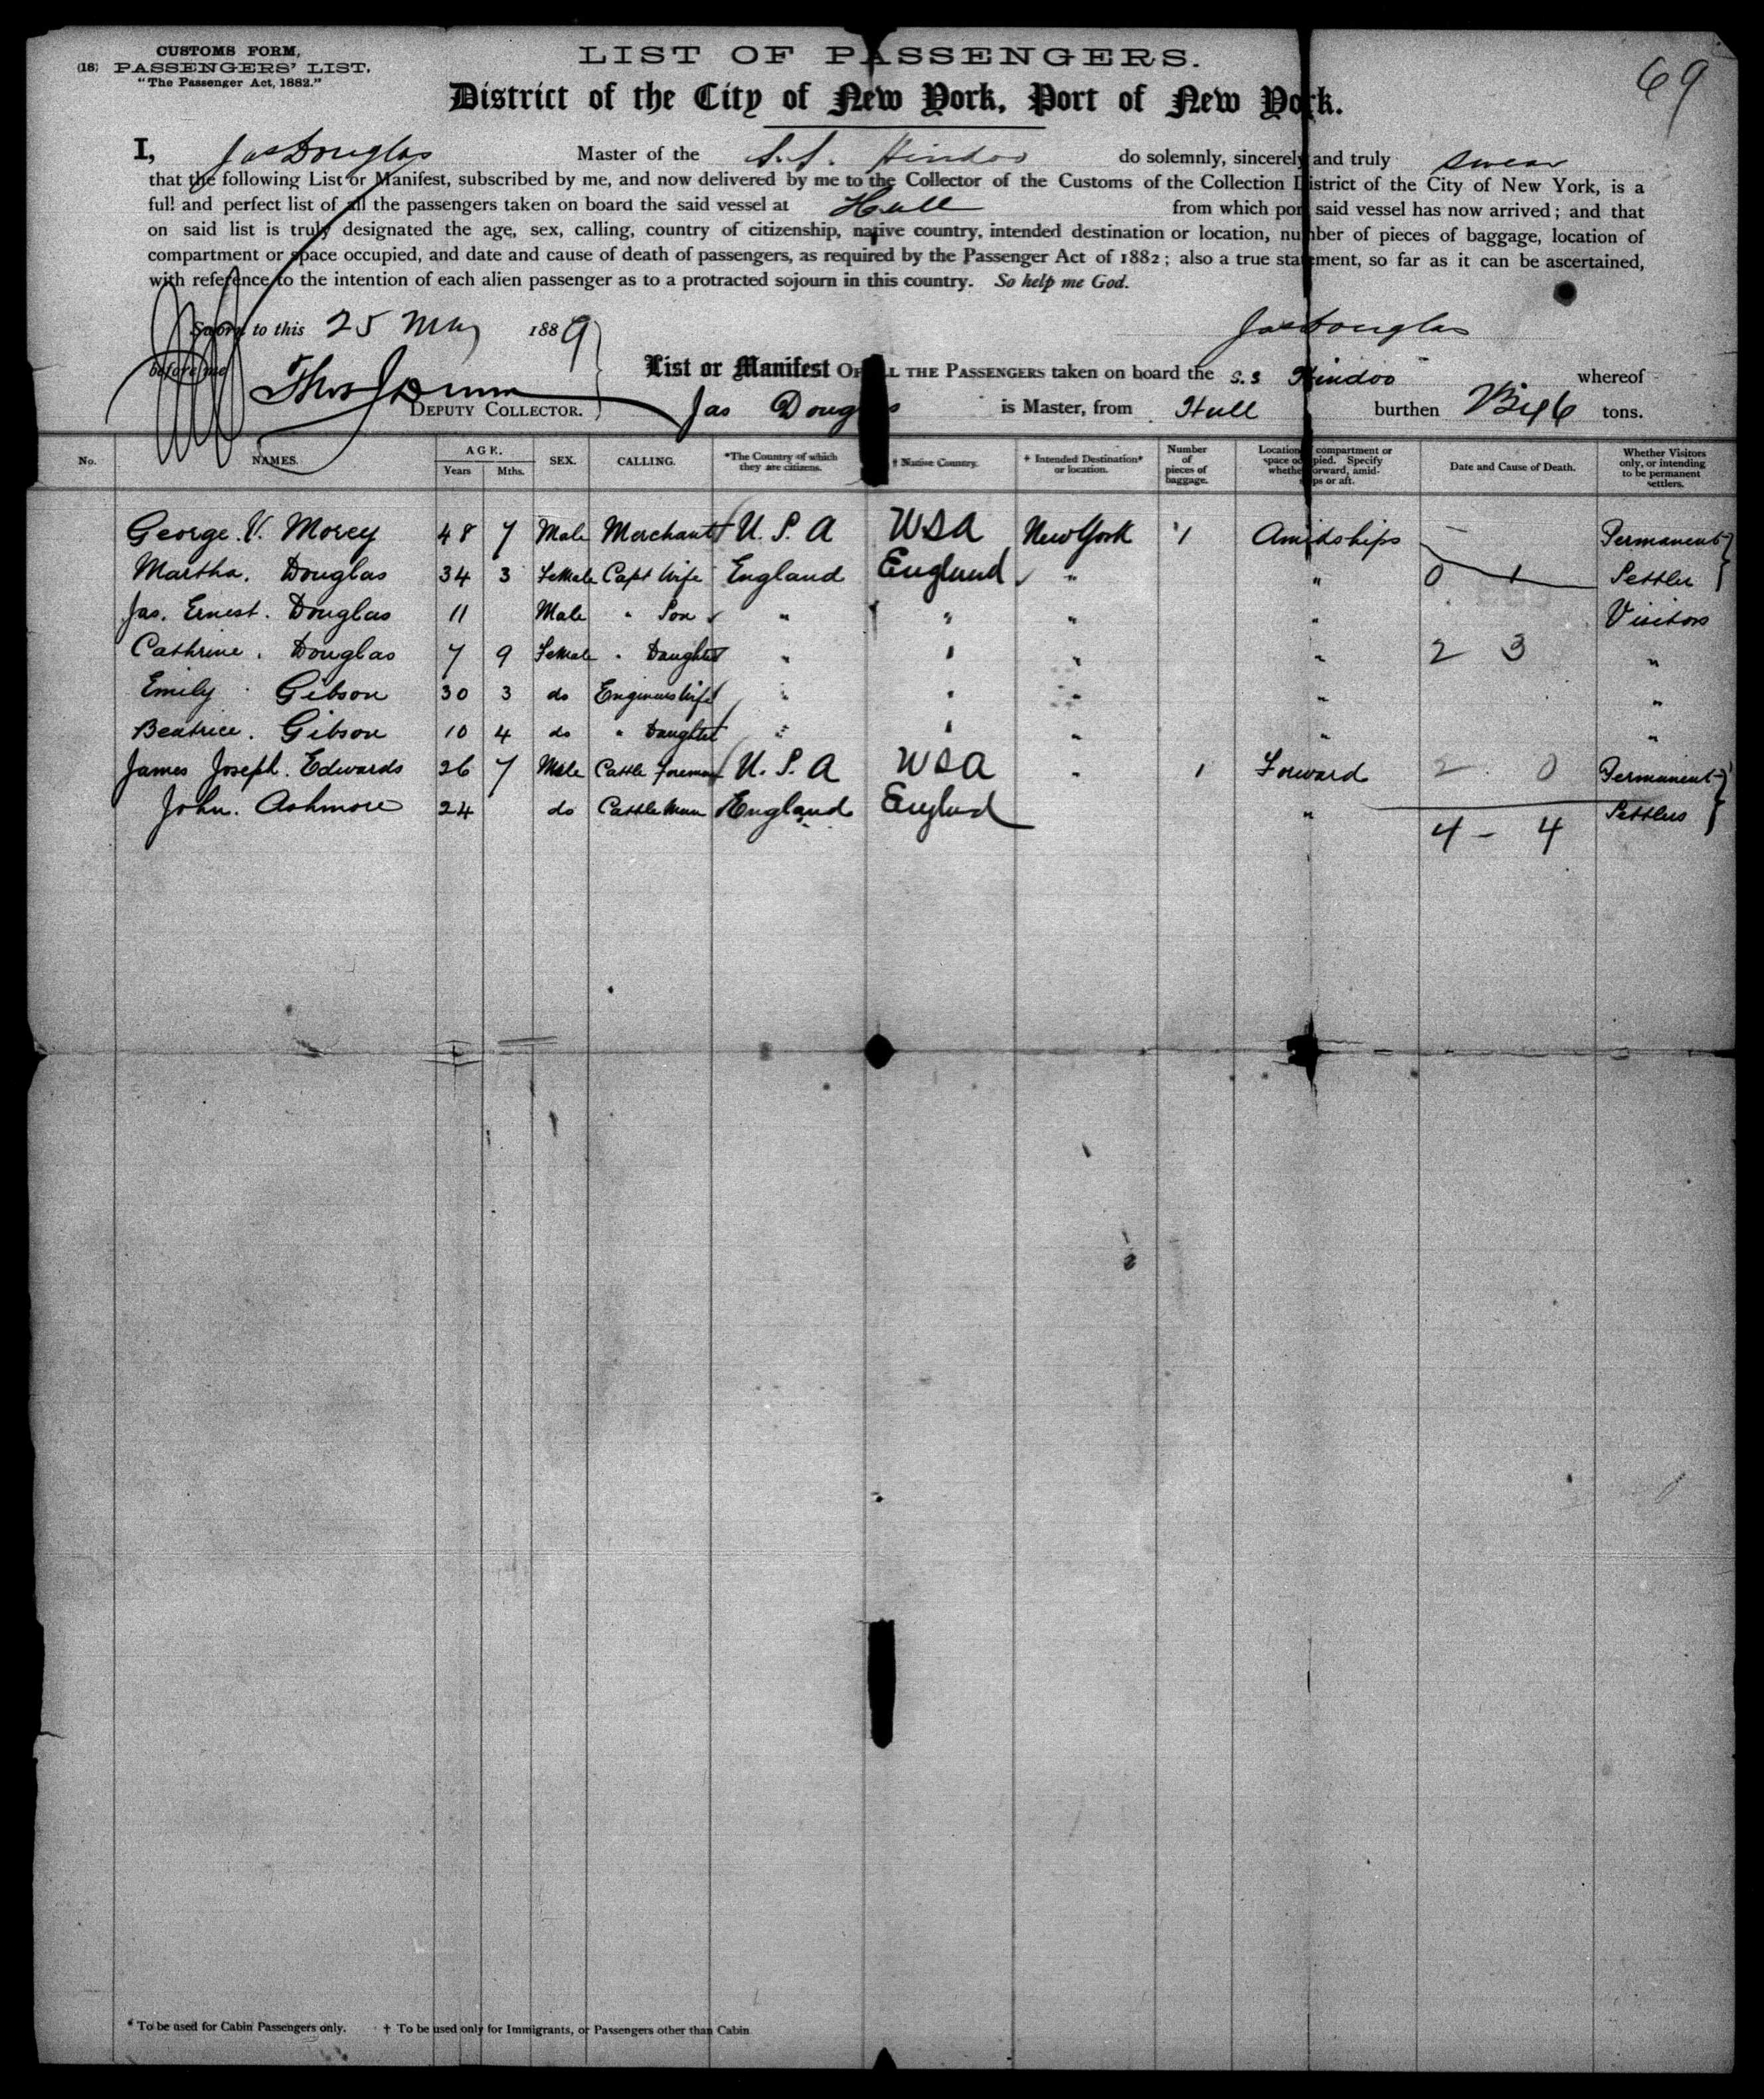 CUSTOMS FORM,
(18) PASSENGERS' LIST.
"The Passenger Act, 1882."
LIST OF PASSENGERS.
69
District of the City of New York, Port of New York.
I, Jas Douglas Master of the S.S. Hindoo do solemnly, sincerely and truly swear
that the following List or Manifest, subscribed by me, and now delivered by me to the Collector of the Customs of the Collection District of the City of New York, is a
full and perfect list of all the passengers taken on board the said vessel at Hull from which port said vessel has now arrived; and that
on said list is truly designated the age, sex, calling, country of citizenship, native country, intended destination or location, number of pieces of baggage, location of
compartment or space occupied, and date and cause of death of passengers, as required by the Passenger Act of 1882; also a true statement, so far as it can be ascertained,
with reference to the intention of each alien passenger as to a protracted sojourn in this country. So help me God.
Sworn to this 25 May 1889
Jas Douglas
before me
Thos J Dunn
DEPUTY COLLECTOR.
List or Manifest OF ALL THE PASSENGERS taken on board the S.S Hindoo whereof
Jas Douglas is Master, from Hull burthen tons.
No. NAMES. AGE. Years Mths. SEX. CALLING. *The Country of which they are citizens. † Native Country. † Intended Destination* or location. Number of pieces of baggage. Location of compartment or space occupied. Specify whether forward, amidships or aft. Date and Cause of Death. Whether Visitors only, or intending to be permanent settlers.
George. V. Morey 48 7 Male Merchant U. S. A USA New York 1 Amidships — Permanent
Martha. Douglas 34 3 Female Capt Wife England England " " 0 1 Settler
Jas. Ernest. Douglas 11 Male " Son " " " " Visitors
Cathrine. Douglas 7 9 Female " Daughter " " " " 2 3 "
Emily Gibson 30 3 do Engineers Wife " " " " "
Beatrice. Gibson 10 4 do " Daughter " " " " "
James Joseph. Edwards 26 7 Male Cattle Foreman U. S. A USA " 1 Forward 2 0 Permanent
John. Ashmore 24 do Cattle Man England England " Settlers
4 - 4
* To be used for Cabin Passengers only. † To be used only for Immigrants, or Passengers other than Cabin